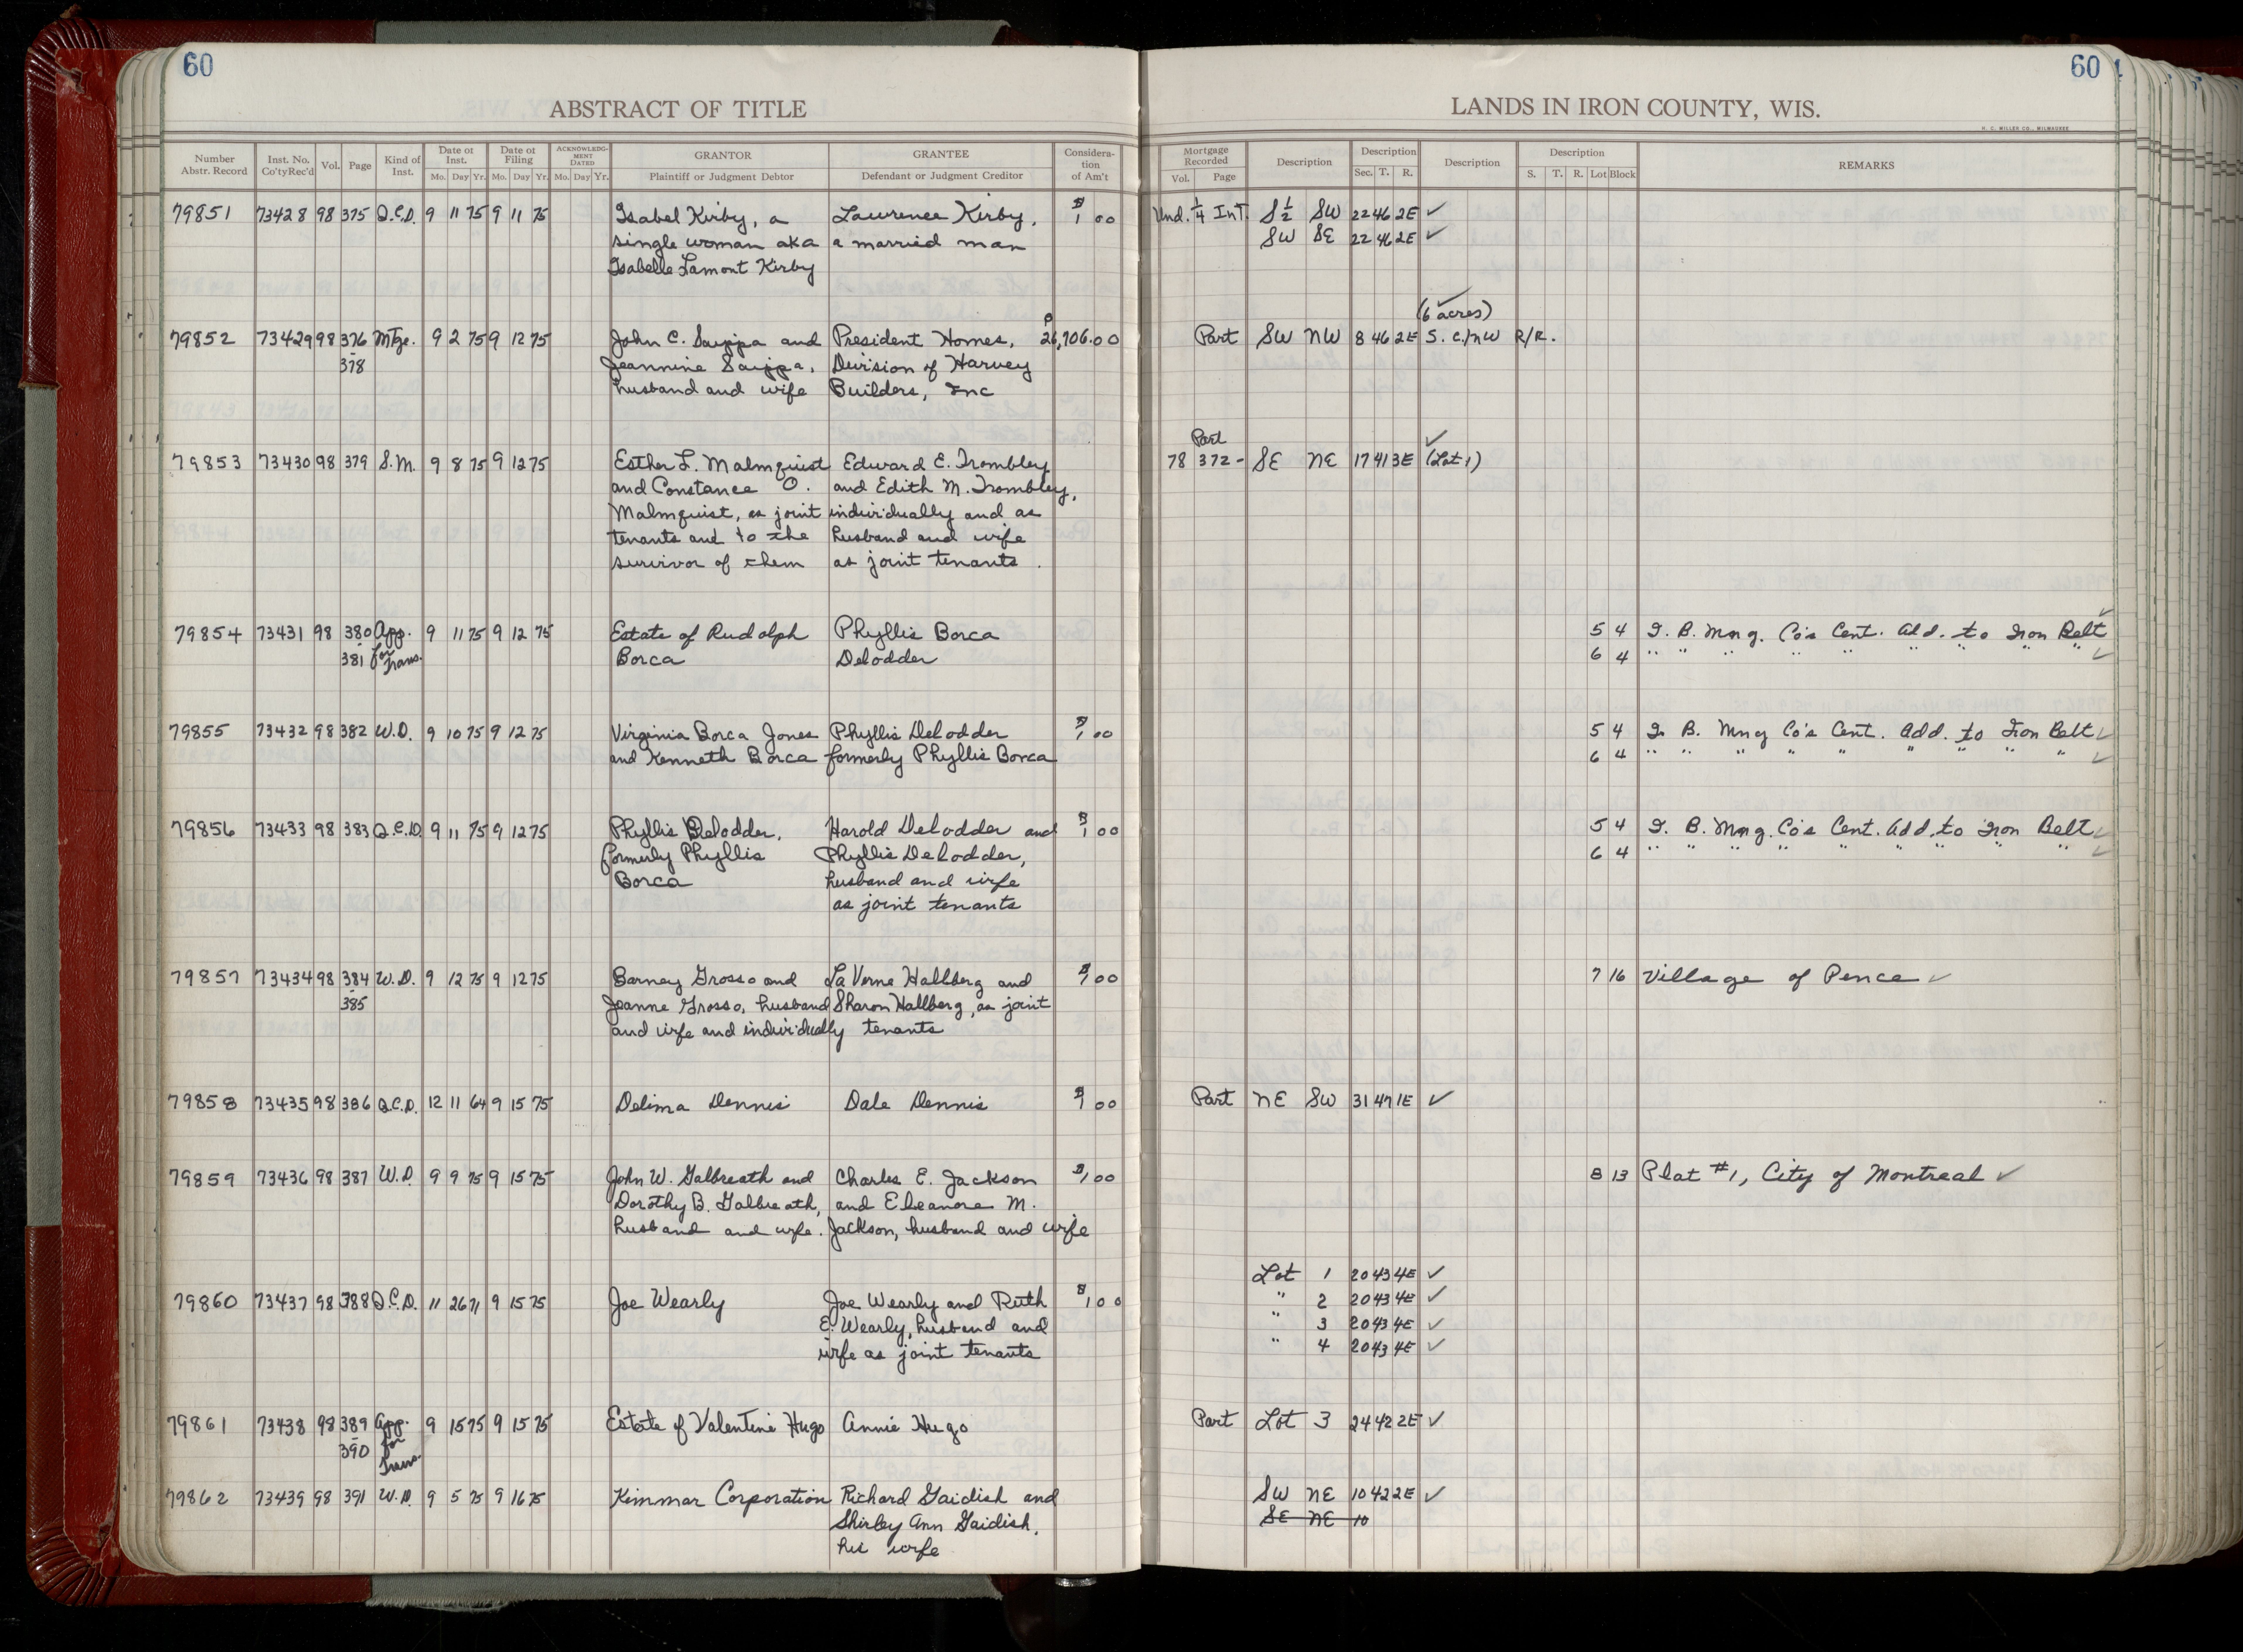 60
60
ABSTRACT OF TITLE
LANDS IN IRON COUNTY, WIS.
H. C. MILLER CO., MILWAUKEE
Number Abstr. Record | Inst. No. Co'tyRec'd | Vol. | Page | Kind of Inst. | Date of Inst. Mo. Day Yr. | Date of Filing Mo. Day Yr. | ACKNOWLEDGMENT DATED Mo. Day Yr. | GRANTOR Plaintiff or Judgment Debtor | GRANTEE Defendant or Judgment Creditor | Consideration of Am't | Mortgage Recorded Vol. Page | Description | Description Sec. T. R. | Description | Description S. T. R. Lot Block | REMARKS
79851 73428 98 375 Q.C.D. 9 11 75 9 11 75 Isabel Kirby, a Lawrence Kirby, $1 00 Und. 1/4 Int. S 1/2 SW 22 46 2E ✓
single woman aka a married man SW SE 22 46 2E ✓
Isabelle Lamont Kirby
(6 acres) ✓
79852 73429 98 376 Mtge. 9 2 75 9 12 75 John C. Sauppa and President Homes, 26,706.00 Part SW NW 8 46 2E S. C/NW R/R.
-378 Jeannine Sauppa, Division of Harvey
husband and wife Builders, Inc
Part ✓
79853 73430 98 379 S.M. 9 8 75 9 12 75 Esther L. Malmquist Edward E. Trombley 78 372- SE NE 17 41 3E (Lot 1)
and Constance O. and Edith M. Trombley,
Malmquist, as joint individually and as
tenants and to the husband and wife
survivor of them as joint tenants.
79854 73431 98 380 App. 9 11 75 9 12 75 Estate of Rudolph Phyllis Borca 5 4 I. B. Mng. Co's Cent. Add. to Iron Belt ✓
-381 for Trans. Borca Delodder 6 4 " " " " " " " " " ✓
79855 73432 98 382 W.D. 9 10 75 9 12 75 Virginia Borca Jones Phyllis Delodder $1 00 5 4 I. B. Mng Co's Cent. Add. to Iron Belt ✓
and Kenneth Borca formerly Phyllis Borca 6 4 " " " " " " " " " ✓
79856 73433 98 383 Q.C.D. 9 11 75 9 12 75 Phyllis Delodder, Harold Delodder and $1 00 5 4 I. B. Mng. Co's Cent. Add. to Iron Belt ✓
formerly Phyllis Phyllis Delodder, 6 4 " " " " " " " " " ✓
Borca husband and wife
as joint tenants
79857 73434 98 384 W.D. 9 12 75 9 12 75 Barney Grosso and LaVerne Hallberg and $1 00 7 16 Village of Pence ✓
-385 Jeanne Grosso, husband Sharon Hallberg, as joint
and wife and individually tenants
79858 73435 98 386 Q.C.D. 12 11 64 9 15 75 Delima Dennis Dale Dennis $1 00 Part NE SW 31 47 1E ✓
79859 73436 98 387 W.D. 9 9 75 9 15 75 John W. Galbreath and Charles E. Jackson $1 00 8 13 Plat #1, City of Montreal ✓
Dorothy B. Galbreath, and Eleanore M.
husband and wife. Jackson, husband and wife
Lot 1 20 43 4E ✓
79860 73437 98 388 Q.C.D. 11 26 71 9 15 75 Joe Wearly Joe Wearly and Ruth $1 00 " 2 20 43 4E ✓
E. Wearly, husband and " 3 20 43 4E ✓
wife as joint tenants " 4 20 43 4E ✓
79861 73438 98 389 App. 9 15 75 9 15 75 Estate of Valentine Hugo Annie Hugo Part Lot 3 24 42 2E ✓
-390 for Trans.
79862 73439 98 391 W.D. 9 5 75 9 16 75 Kimmar Corporation Richard Gaidish and SW NE 10 42 2E ✓
Shirley Ann Gaidish, SE NE 10
his wife